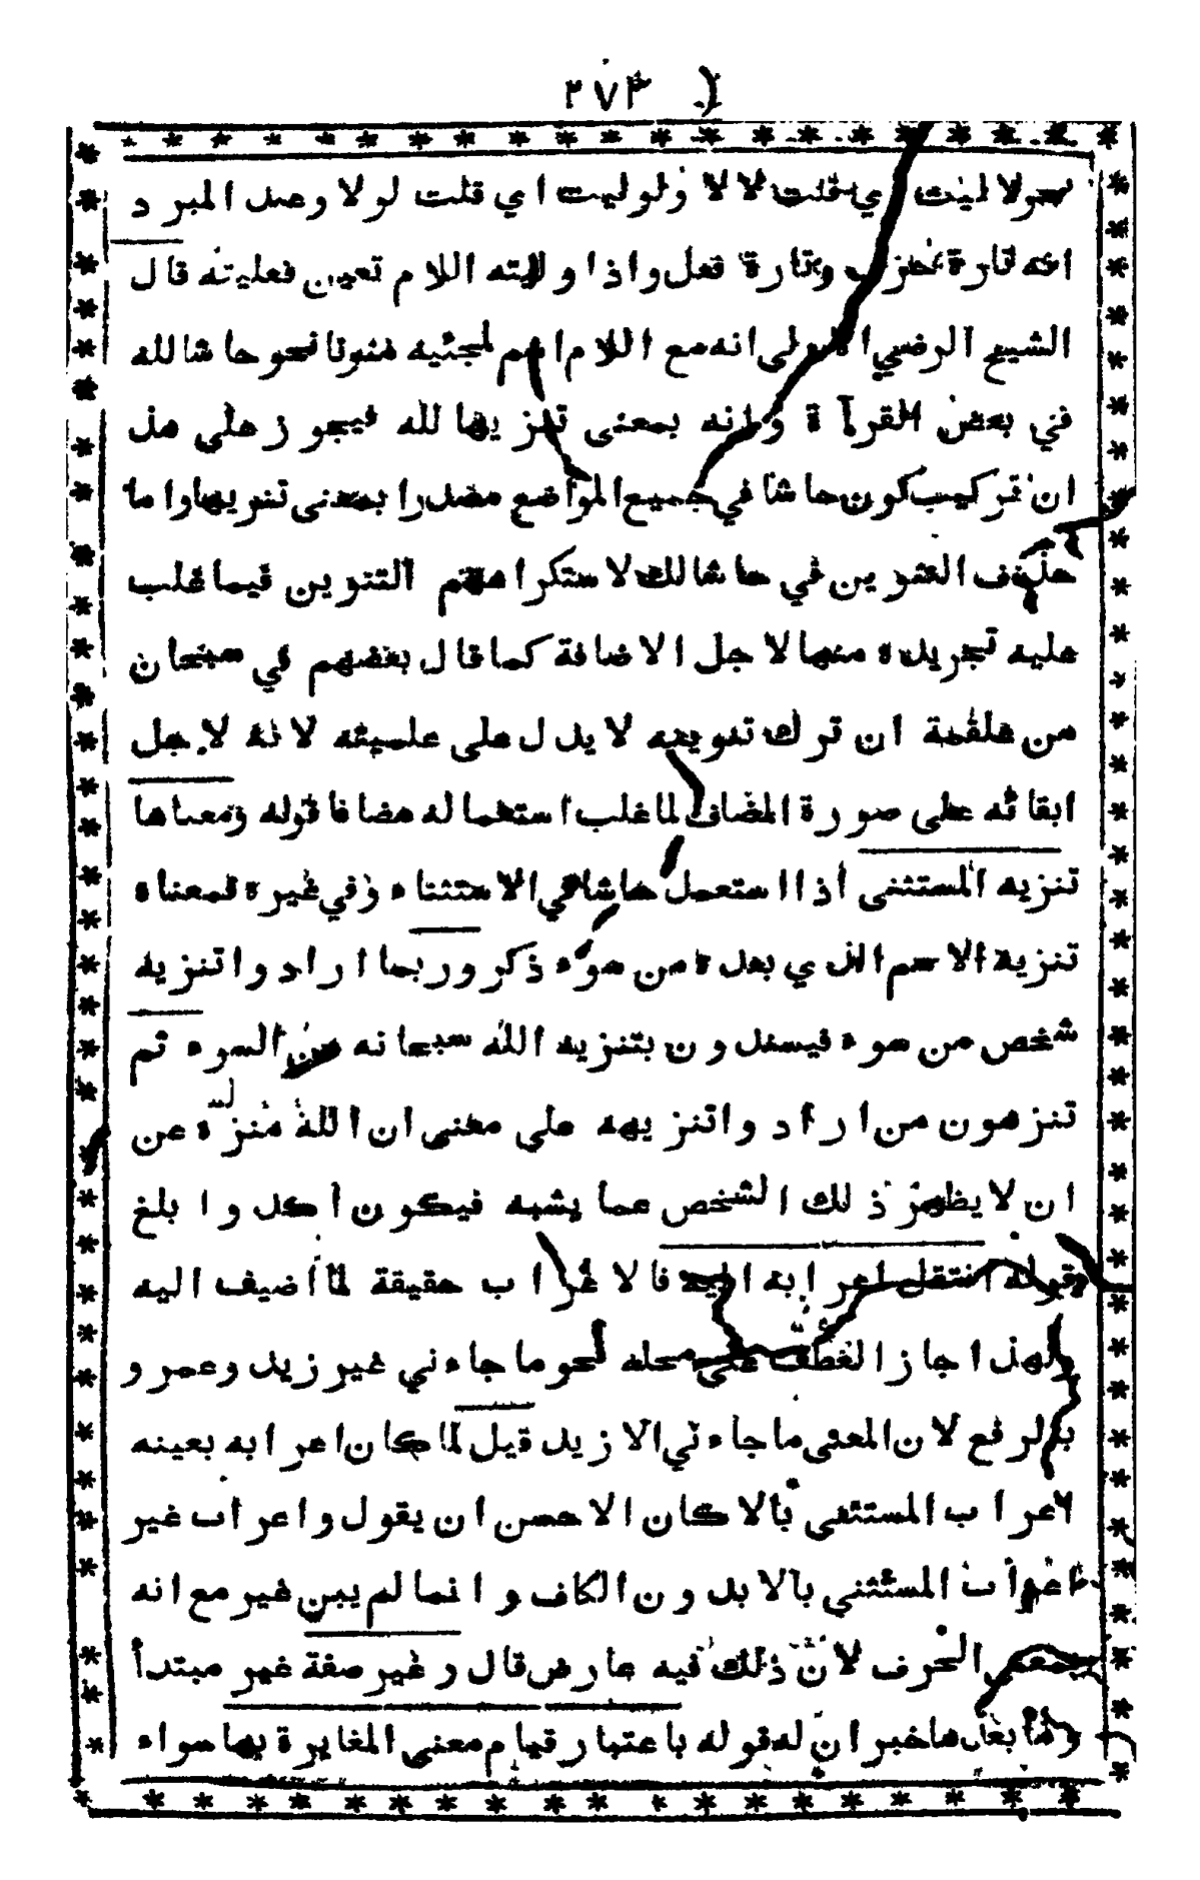 ٢٧٣
لولا ليت اي قلت لا لا ولو ليت اي قلت لولا وعند المبرد
انه تارة حرف وتارة فعل واذا وليته اللام تعين فعليته قال
الشيخ الرضي الاولى انه مع اللام اسم لمجئيه منونا نحو حاشا لله
في بعض القرآة وانه بمعنى تنزيها لله فيجوز على هذ
ان نرتكب كون حاشا في جميع المواضع مصدرا بمعنى تنزيها واما
حذف التنوين في حاشا لك لاستكراههم التنوين فيما غلب
عليه تجريده منها لاجل الاضافة كما قال بعضهم في سبحان
من علقمة ان ترك تنوينه لا يدل على علميته لانه لاجل
ابقائه على صورة المضاف لما غلب استعماله مضافا قوله ومعناها
تنزيه المستثنى اذا استعمل حاشا في الاستثناء وفي غيره فمعناه
تنزيه الاسم الذي بعده من سوء ذكر وربما ارادوا تنزيه
شخص من سوء فيبتدون بتنزيه الله سبحانه من السوء ثم
تنزهون من ارادوا تنزيهه على معنى ان الله منزه عن
ان لا يظهر ذلك الشخص عما يشبه فيكون أكد وا بلغ
قوله انتقل اعرابه اليه فالاعراب حقيقة لما أضيف اليه
ولهذا جاز العطف على محله نحو ما جاءني غير زيد وعمرو
بالرفع لان المعنى ما جاءني الا زيد قيل لما كان اعرابه بعينه
اعراب المستثنى بالا كان الاحسن ان يقول واعراب غير
اعراب المستثنى بالا بدون الكاف وانما لم يبن غير مع انه
بمعنى الحرف لان ذلك فيه عارض قال وغير صفة غير مبتدأ
وما بعدها خبر ان له قوله باعتبار قيام معنى المغايرة بها سواء